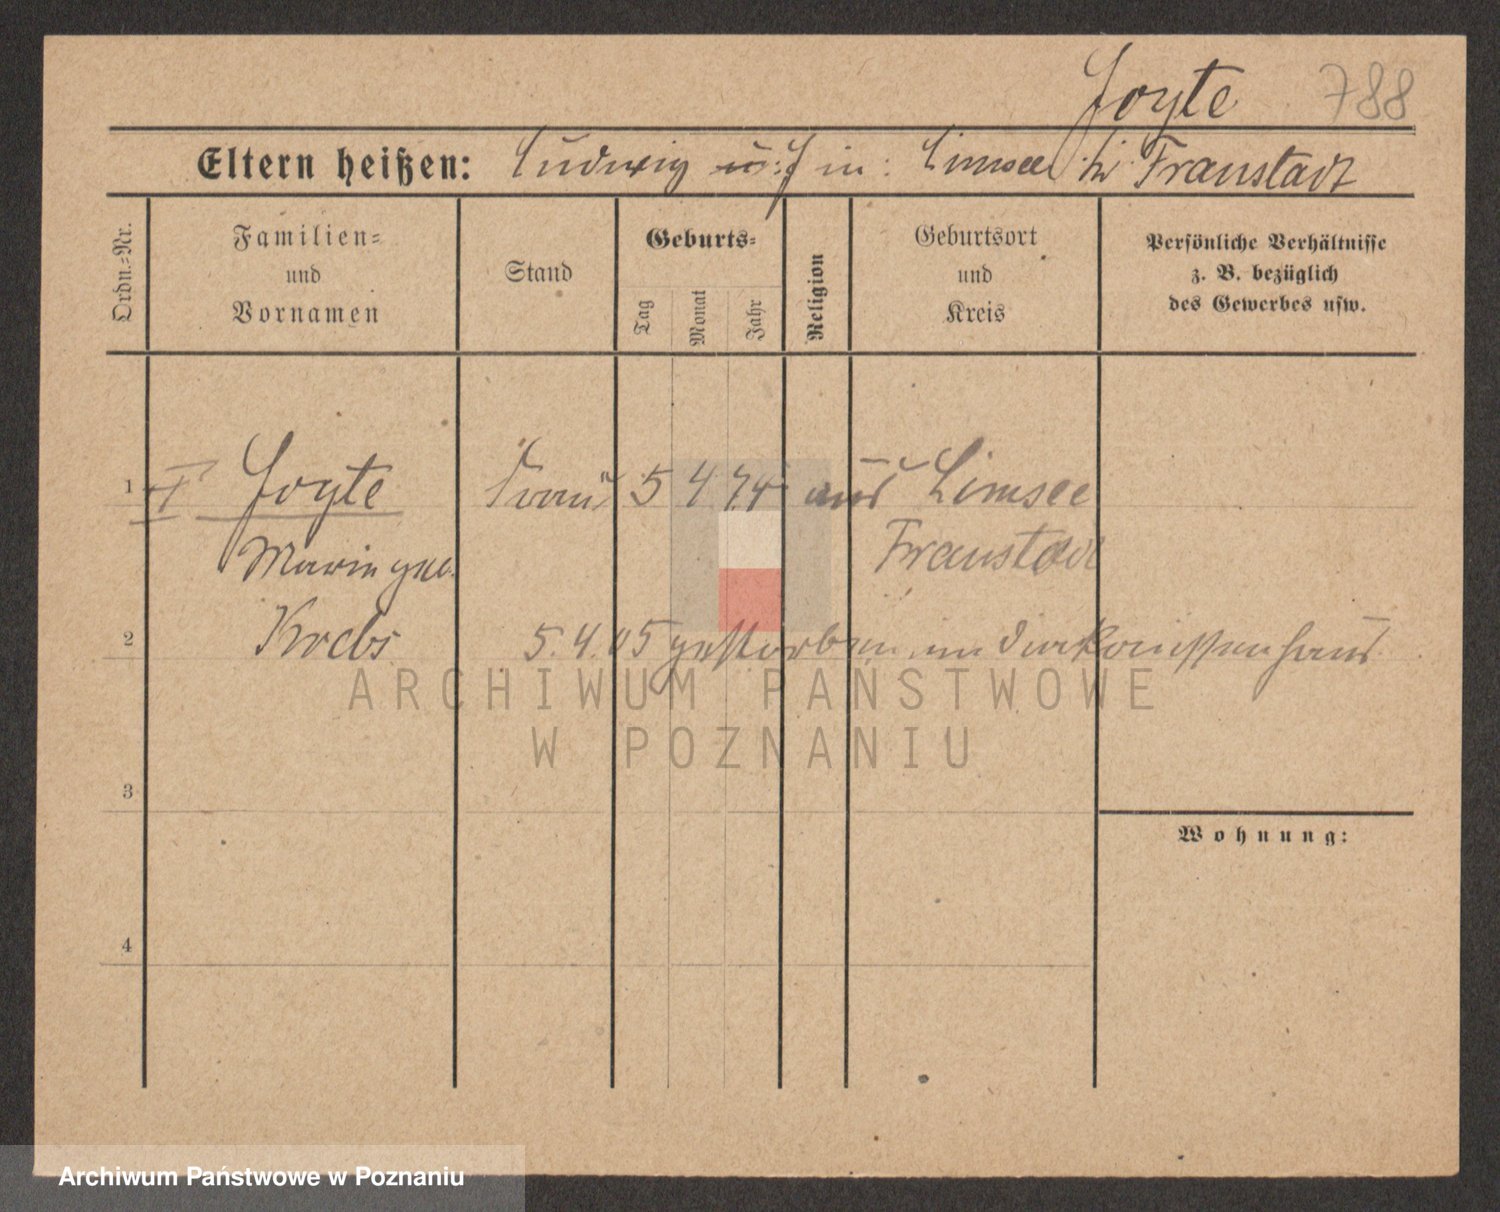 Joyte 788
Eltern heißen: Ludwig in: Limsee Kr Fraustadt
Ordn.=Nr.
Familien=
und
Vornamen
Stand
Geburts=
Tag
Monat
Jahr
Religion
Geburtsort
und
Kreis
Persönliche Verhältnisse
z. B. bezüglich
des Gewerbes usw.
1 Joyte Frau 5 4 74 aus Limsee
Marie geb. Fraustadt
2 Krebs 5.4.05 gestorben im Diakonissenhaus
ARCHIWUM PAŃSTWOWE
W POZNANIU
3
Wohnung:
4
Archiwum Państwowe w Poznaniu